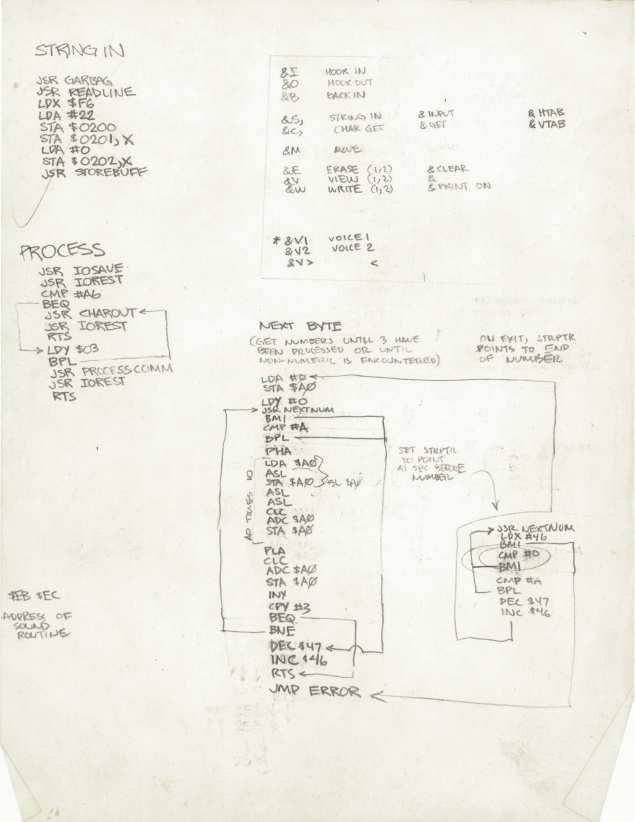 STRING IN
JSR GARBAG
JSR READLINE
LDX $F6
LDA #22
STA $0200
STA $0201,X
LDA #0
STA $0202,X
JSR STOREBUFF
&I HOOK IN
&O HOOK OUT
&B BACK IN
&S, STRING IN & INPUT & HTAB
&C, CHAR GET & GET & VTAB
&M MOVE
&E ERASE (1,2) & CLEAR
&V VIEW (1,2) &
&W WRITE (1,2) & PRINT ON
* &V1 VOICE 1
&V2 VOICE 2
&V> <
PROCESS
JSR IOSAVE
JSR IOREST
CMP #A6
BEQ
JSR CHAROUT
JSR IOREST
RTS
LDY $03
BPL
JSR PROCESSCOMM
JSR IOREST
RTS
NEXT BYTE
(GET NUMBERS UNTIL 3 HAVE
BEEN PROCESSED OR UNTIL
NON-NUMERIC IS ENCOUNTERED)
ON EXIT, STRPTR
POINTS TO END
OF NUMBER
LDA #0
STA $A0
LDY #0
JSR NEXTNUM
BMI
CMP #A
BPL
PHA
LDA $A0
ASL
STA $A0
ASL $A0
ASL
ASL
CLC
ADC $A0
STA $A0
A0 TIMES 10
PLA
CLC
ADC $A0
STA $A0
INY
CPY #3
BEQ
BNE
DEC $47
INC $46
RTS
JMP ERROR
SET STRPTR
TO POINT
AT SEC BEFORE
NUMBER
JSR NEXTNUM
LDX #46
BMI
CMP #0
BMI
CMP #A
BPL
DEC $47
INC $46
$EB $EC
ADDRESS OF
SOUND
ROUTINE